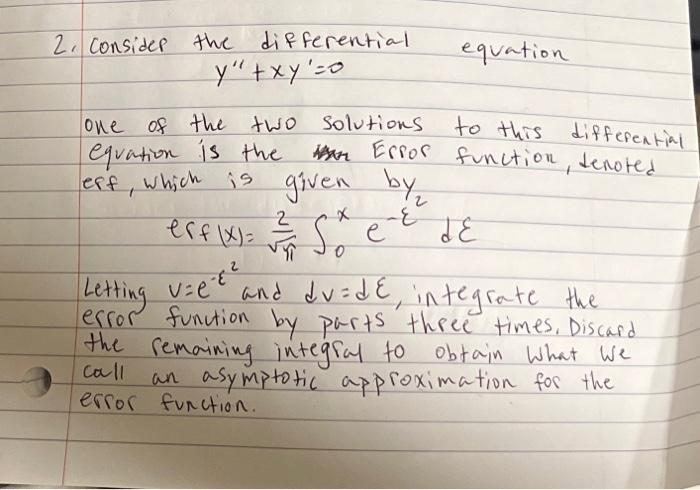 2. Consider the differential equation
y'' + xy' = 0
one of the two solutions to this differential
equation is the Error function, denoted
erf, which is given by
erf(x) = 2/√π ∫₀ˣ e^(-ε²) dε
Letting v = e^(-ε²) and dv = dε, integrate the
error function by parts three times. Discard
the remaining integral to obtain what we
call an asymptotic approximation for the
error function.